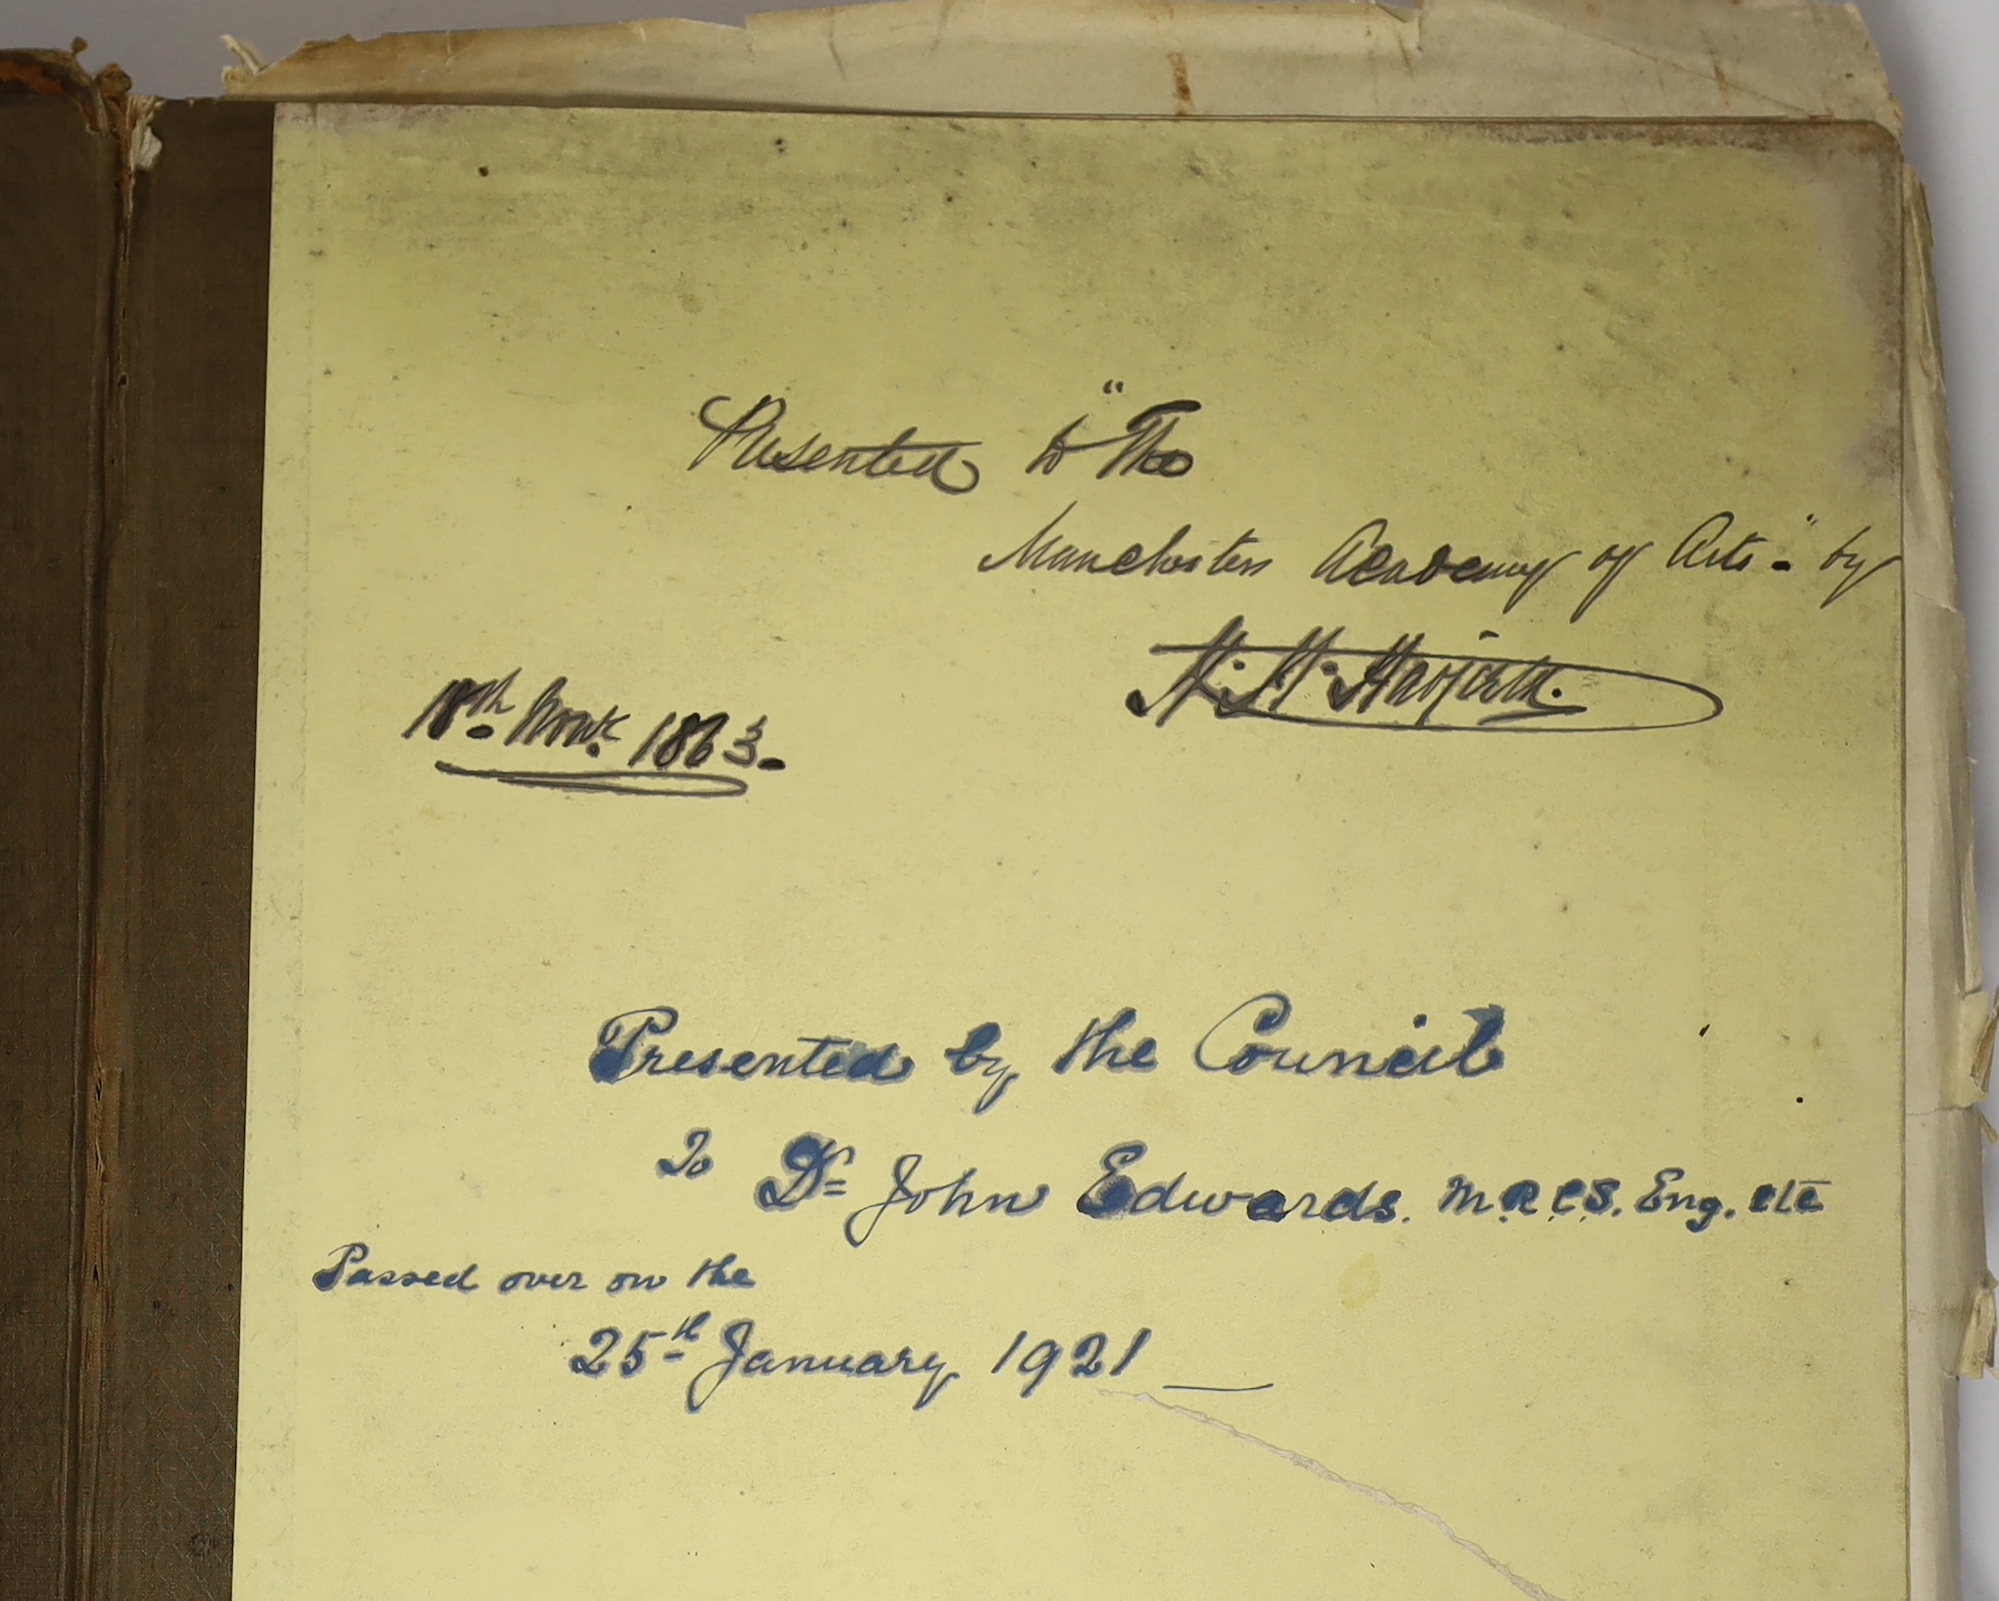 Presented to "The
Manchester Academy of Arts" by
18th. Novr. 1863.
Presented by the Council
To Dr John Edwards. M.R.C.S. Eng. etc
Passed over on the
25th January 1921